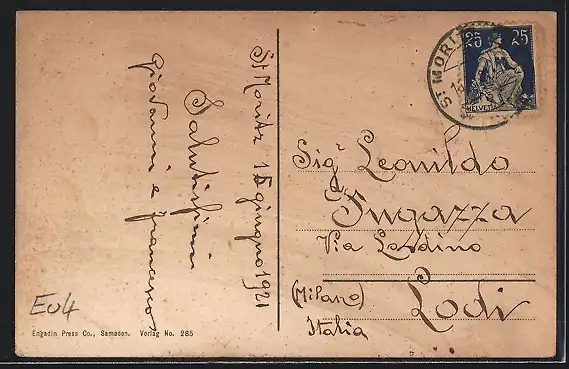 St Moritz 15 giugno 1921
Salutissimi
Giovanni e Francesco
Sigr Leonildo
Fugazza
Via Lodino
Lodi
(Milano)
Italia
ST. MORITZ
25 25
HELVETIA
Eu4
Engadin Press Co., Samaden. Verlag No. 285